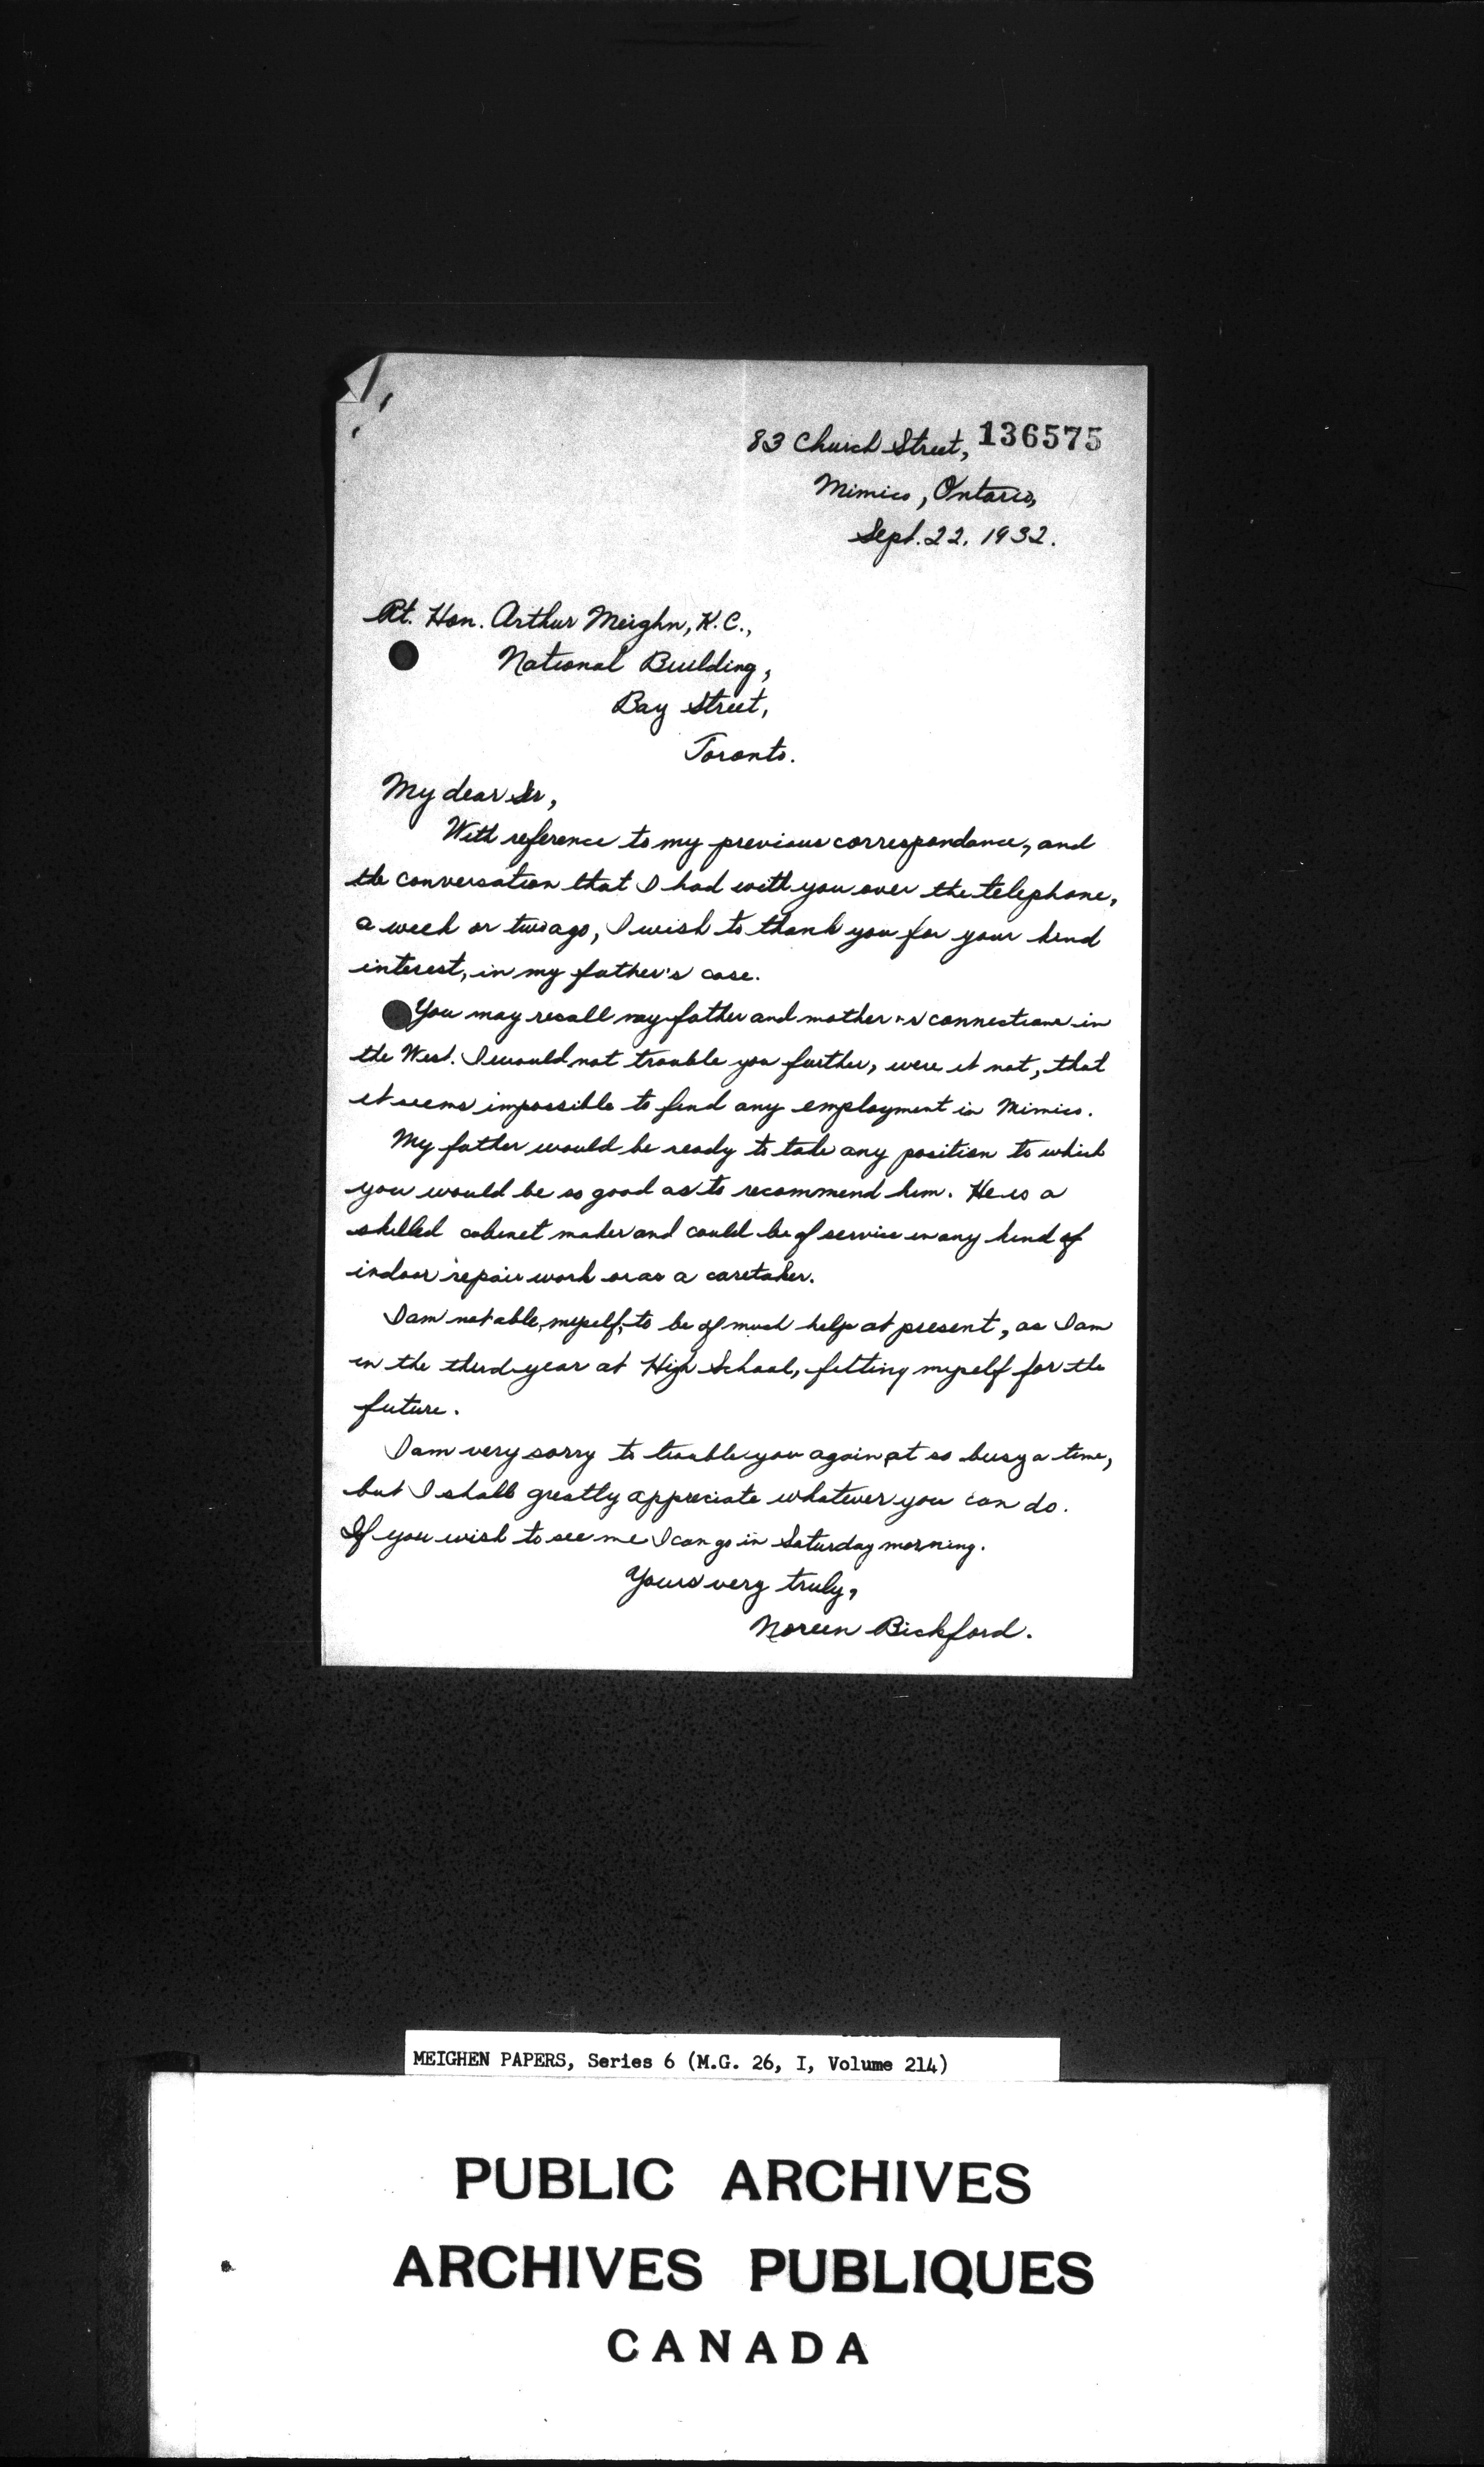 83 Church Street, 136575
Mimico, Ontario,
Sept. 22, 1932.
Rt. Hon. Arthur Meighn, K.C.,
National Building,
Bay Street,
Toronto.
My dear Sir,
With reference to my previous correspondance, and
the conversation that I had with you over the telephone,
a week or two ago, I wish to thank you for your kind
interest, in my father's case.
You may recall my father and mother's connections in
the West. I would not trouble you further, were it not, that
it seems impossible to find any employment in Mimico.
My father would be ready to take any position to which
you would be so good as to recommend him. He is a
skilled cabinet maker and could be of service in any kind of
indoor repair work or as a caretaker.
I am not able, myself, to be of much help at present, as I am
in the third year at High School, fitting myself for the
future.
I am very sorry to trouble you again at so busy a time,
but I shall greatly appreciate whatever you can do.
If you wish to see me I can go in Saturday morning.
Yours very truly,
Noreen Bickford.
MEIGHEN PAPERS, Series 6 (M.G. 26, I, Volume 214)
PUBLIC ARCHIVES
ARCHIVES PUBLIQUES
CANADA